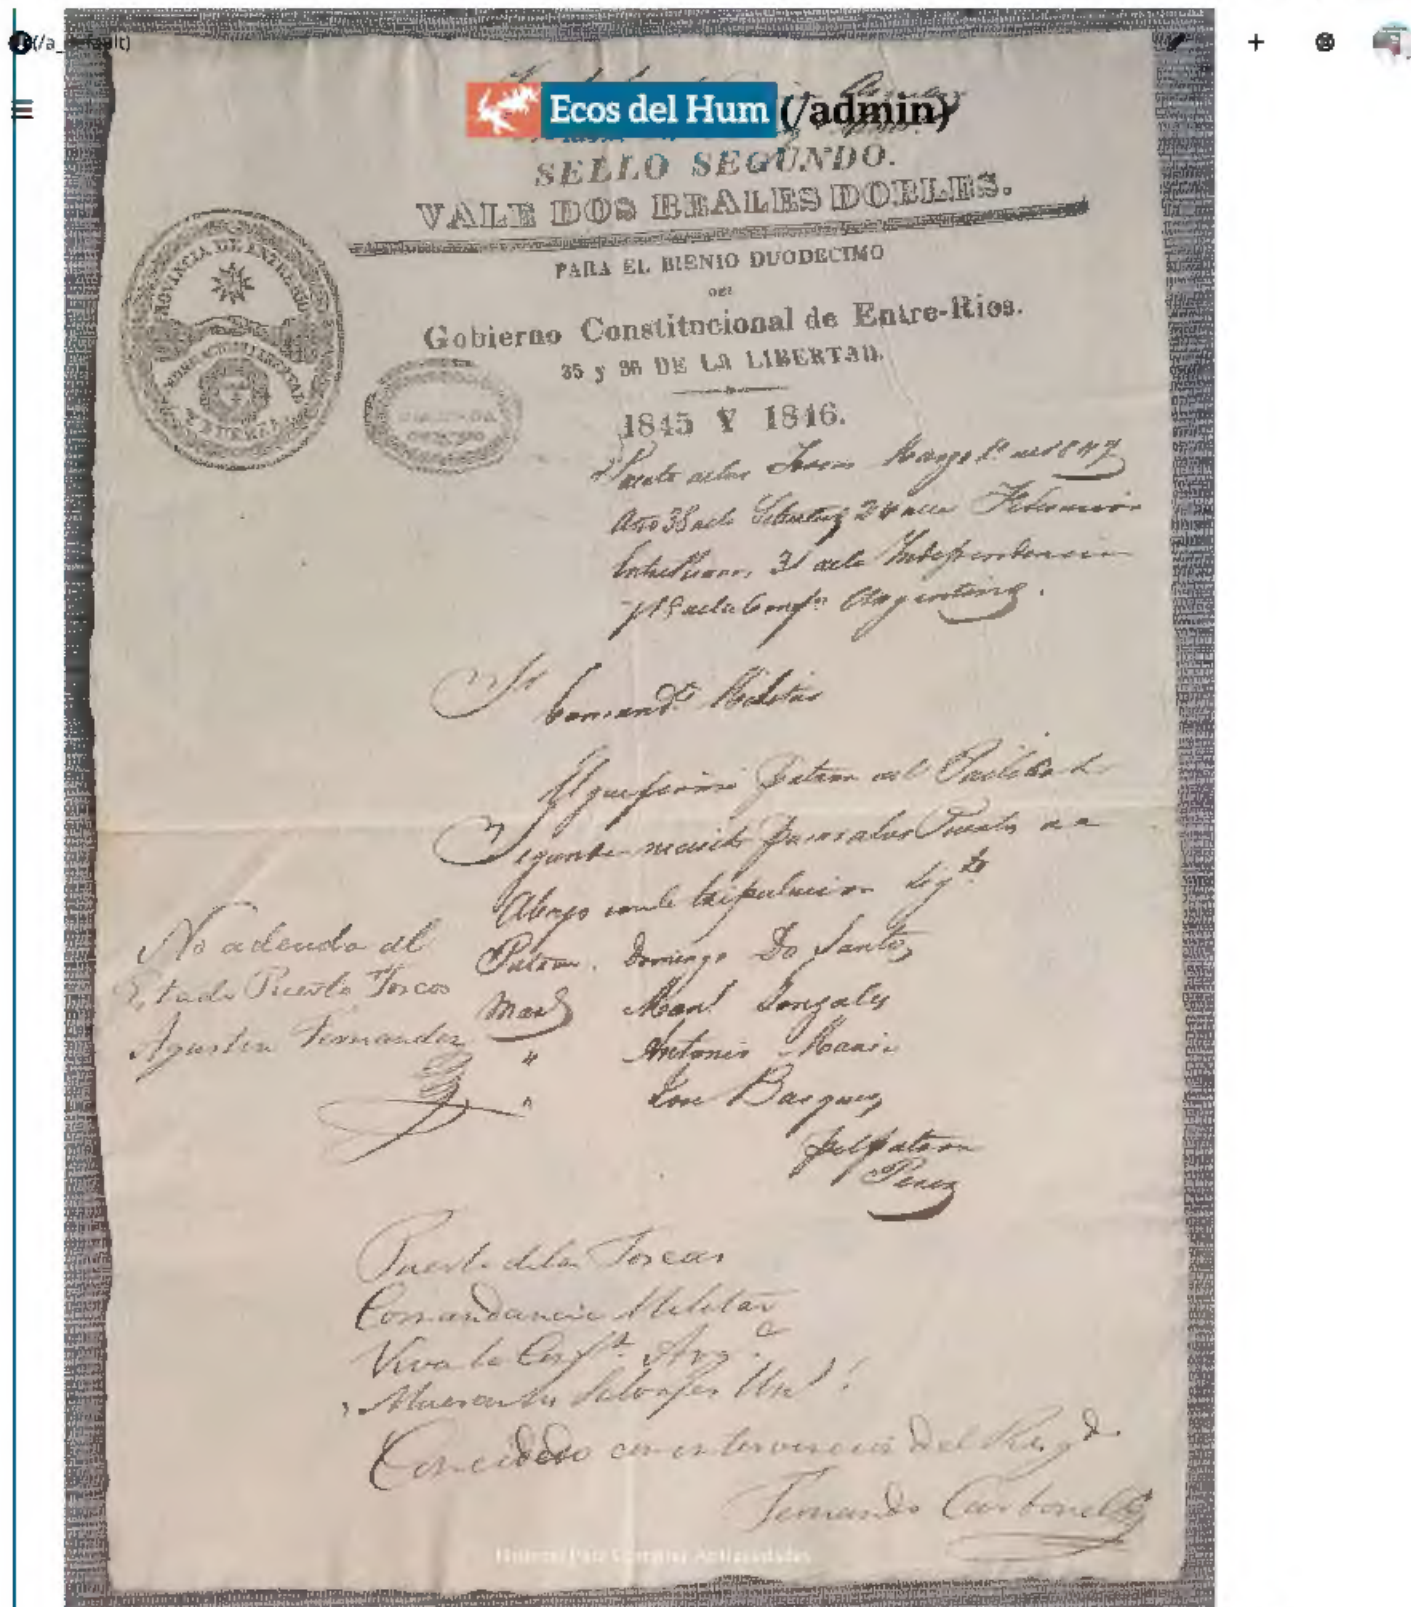 (/a_default)
Ecos del Hum (/admin)
SELLO SEGUNDO.
VALE DOS REALES DOBLES.
PARA EL BIENIO DUODECIMO
DEL
Gobierno Constitucional de Entre-Rios.
35 y 36 DE LA LIBERTAD.
1845 Y 1846.
PROVINCIA DE ENTRE RIOS
Marzo 1º de 1847
Año 38 de la Libertad 24 de la Federacion
Entre Riana, 31 de la Independencia
y 18 de la Confn Argentina.
Sr
Comandte Militar
El que firma Patron del Pailebot
Segundo necesita pasar a los Puertos de
Abajo con la tripulacion sigte
Patron. Domingo Do Santos
Manl Gonzales
" Antonio Maria
" Jose Basques
pr el patron
Perez
No adeuda al
Estado Puerto Toscas
Agustin Fernandez
Puerto de las Toscas
Comandancia Militar
Viva la Confn Arga
Mueran los Salvajes Unl!
Concedido con intervencion del Resgdo
Fernando Carbonell